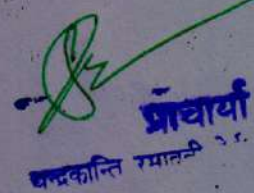 प्राचार्या
चन्द्रकान्ति रमावती